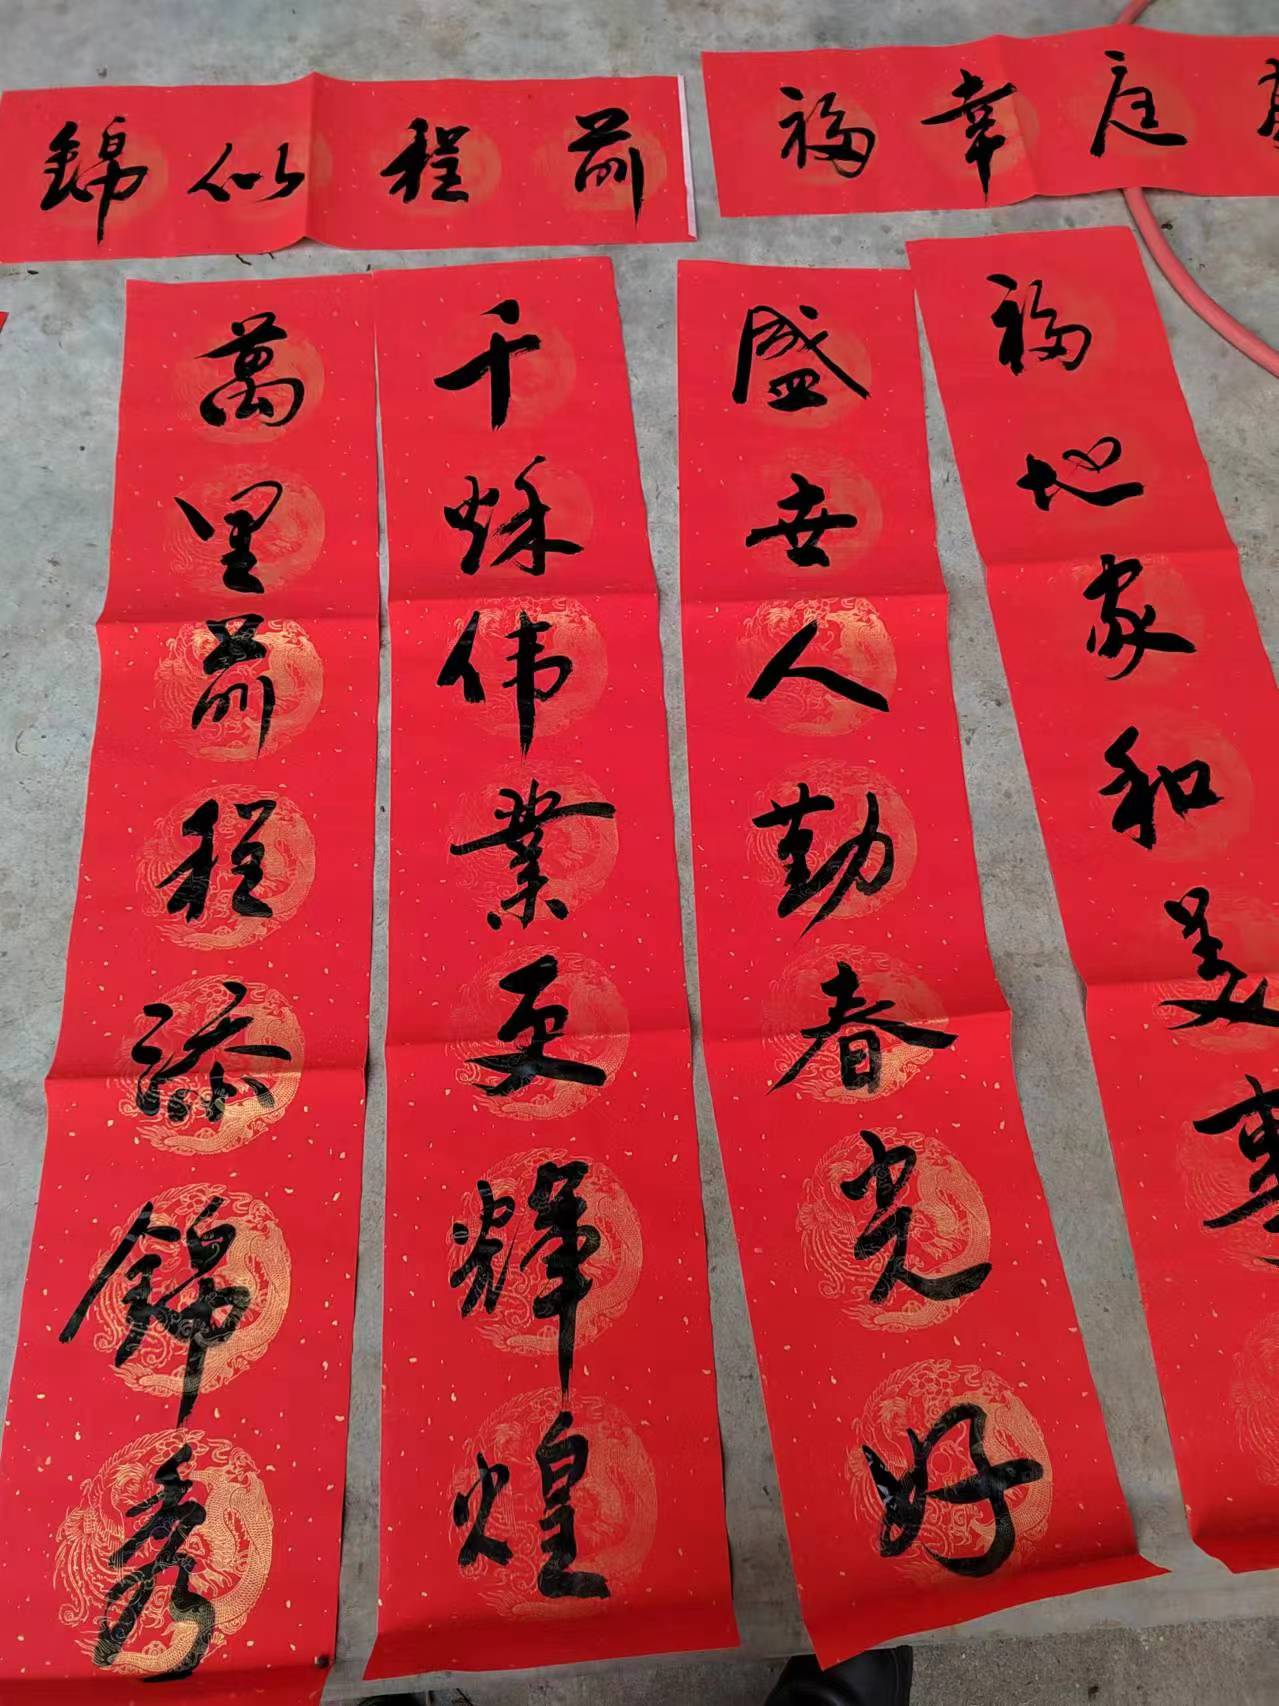 前程似錦
庭幸福
千秌伟業更輝煌
萬里前程添錦秀
福地家和美事
盛世人勤春光好